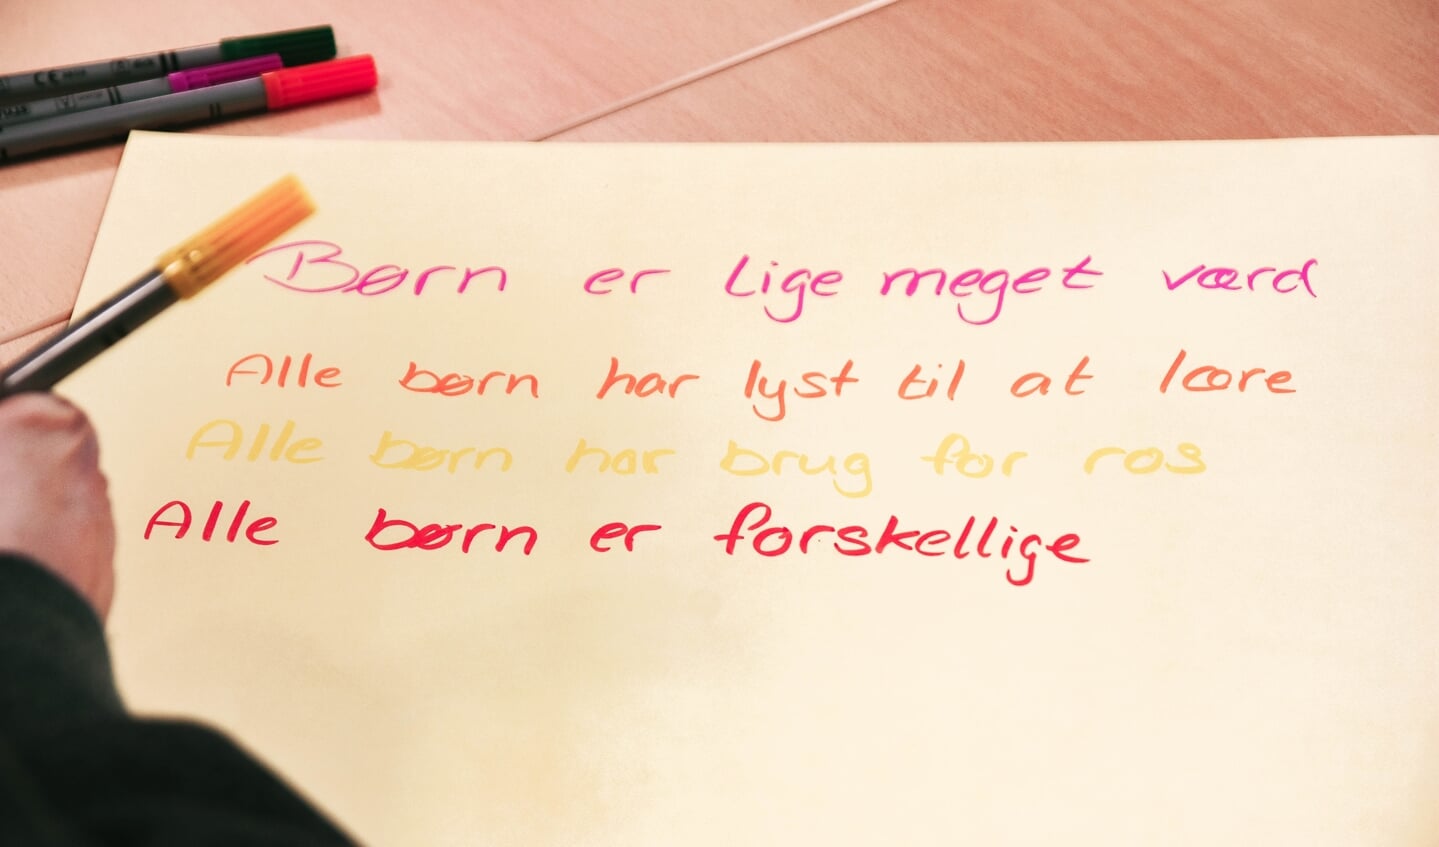 CE
Børn er lige meget værd
Alle børn har lyst til at lære
Alle børn har brug for ros
Alle børn er forskellige